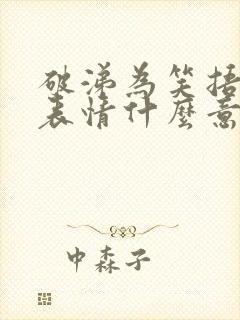 破涕為笑捂
表情什麼意
中森子